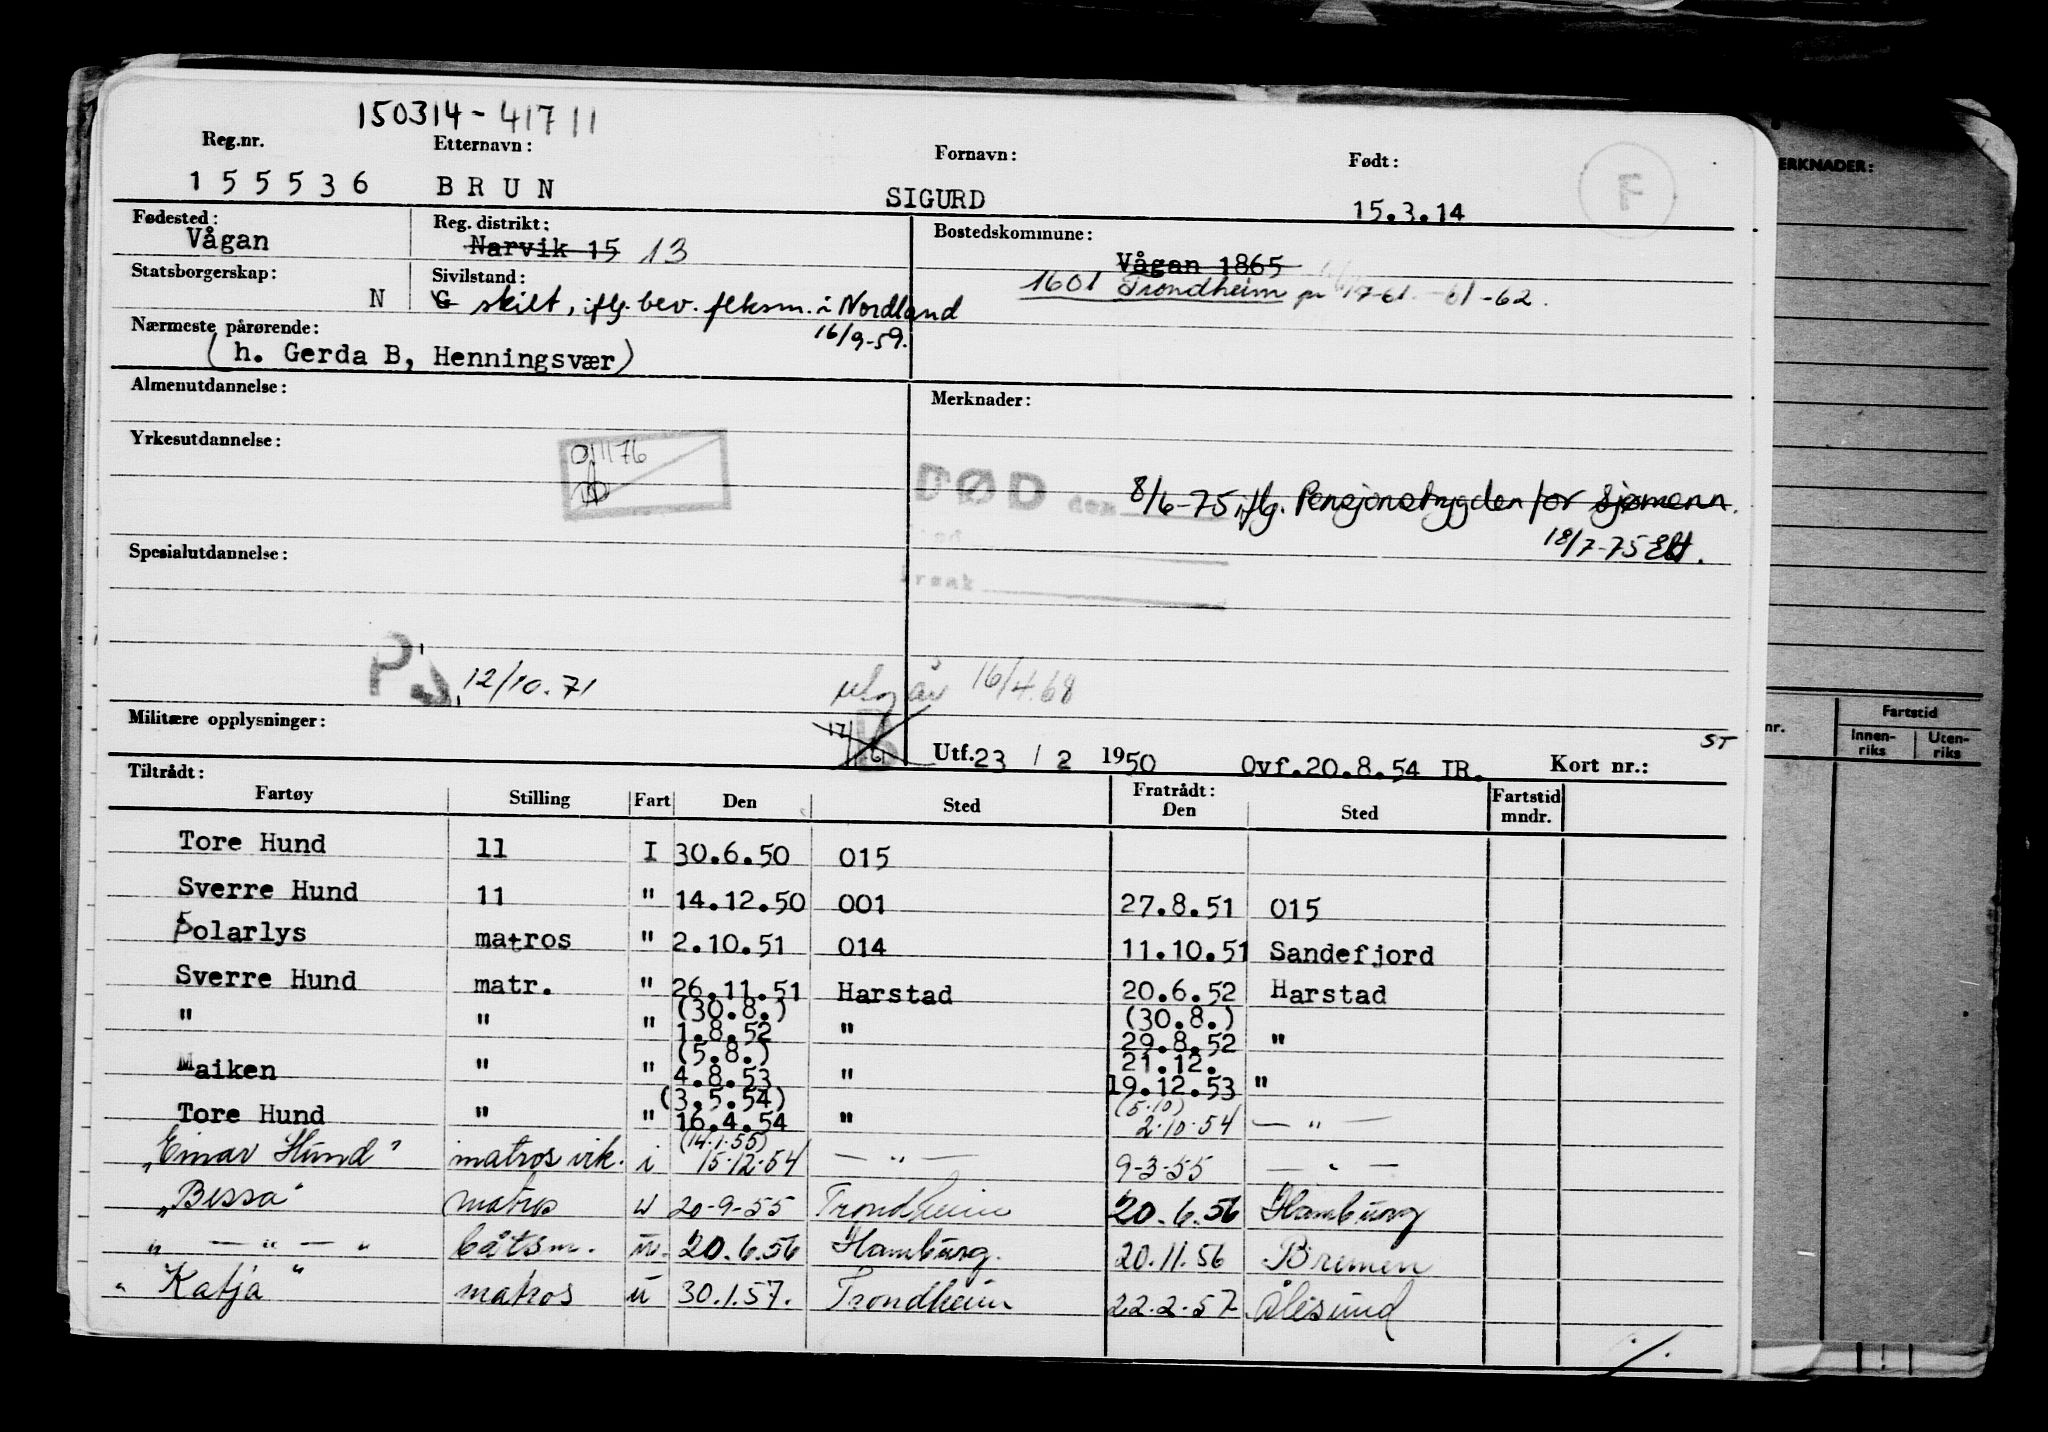 150314-41711
Reg.nr. Etternavn: Fornavn: Født:
155536 BRUN SIGURD 15.3.14
F
Fødested: Reg. distrikt: Bostedskommune:
Vågan Narvik 15 13 Vågan 1865
Statsborgerskap: Sivilstand: 1601 Trondheim -61-62.
N G skilt, iflg. bev. flksm. i Nordland
Nærmeste pårørende: 16/9-59.
(h. Gerda B, Henningsvær)
Almenutdannelse: Merknader:
Yrkesutdannelse:
DØD den 8/6-75 iflg. Pensjonstrygden for sjømenn.
18/7-75
Spesialutdannelse:
PS 12/10.71 16/4.68
Militære opplysninger:
ST
Utf. 23 / 2 1950 Ovf.20.8.54 IR. Kort nr.:
Tiltrådt: Fratrådt:
Fartøy Stilling Fart Den Sted Den Sted Fartstid mndr.
Tore Hund 11 I 30.6.50 015
Sverre Hund 11 " 14.12.50 001 27.8.51 015
Polarlys matros " 2.10.51 014 11.10.51 Sandefjord
Sverre Hund matr. " 26.11.51 Harstad 20.6.52 Harstad
(30.8.) (30.8.)
" " " 1.8.52 " 29.8.52 "
(5.8.) 21.12.
Maiken " " 4.8.53 " 19.12.53 "
(3.5.54) (5.10)
Tore Hund " " 16.4.54 " 2.10.54 — " —
(14.1.55)
"Einar Hund" matros vik. i 15.12.54 — " — 9-3-55 — " —
"Bessa" matros u 20-9-55 Trondheim 20.6.56 Hamburg
" — " — " båtsm. u. 20.6.56 Hamburg. 20.11.56 Bremen
" Katja " matros u 30.1.57. Trondheim 22.2.57 Ålesund
./.
ERKNADER:
nr. Fartstid
Innen-riks Uten-riks